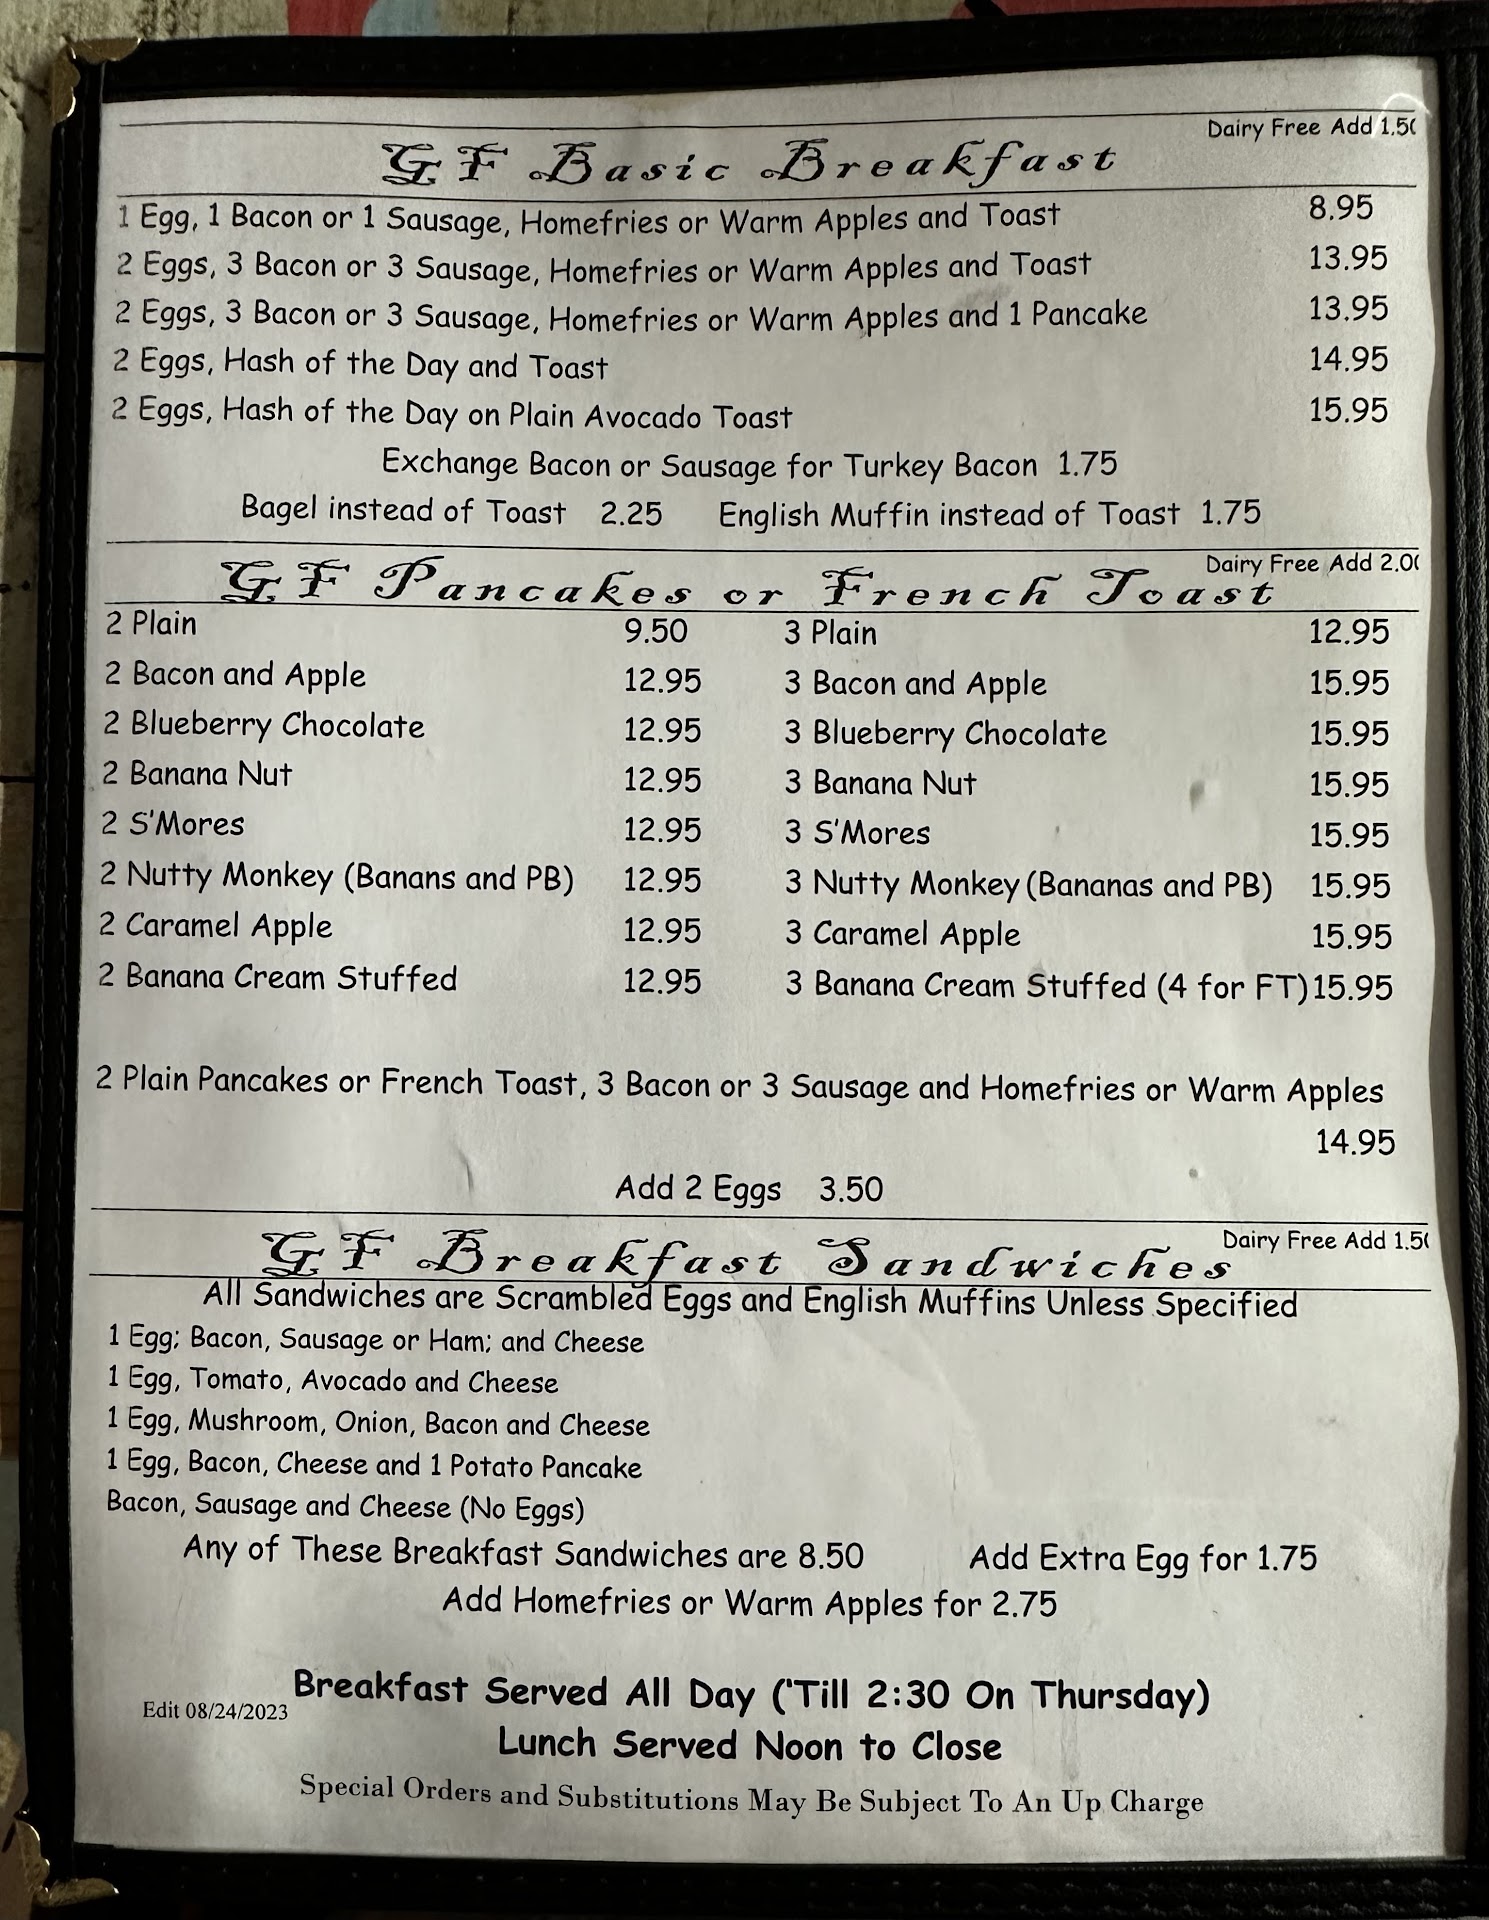 Dairy Free Add 1.50
GF Basic Breakfast
1 Egg, 1 Bacon or 1 Sausage, Homefries or Warm Apples and Toast 8.95
2 Eggs, 3 Bacon or 3 Sausage, Homefries or Warm Apples and Toast 13.95
2 Eggs, 3 Bacon or 3 Sausage, Homefries or Warm Apples and 1 Pancake 13.95
2 Eggs, Hash of the Day and Toast 14.95
2 Eggs, Hash of the Day on Plain Avocado Toast 15.95
Exchange Bacon or Sausage for Turkey Bacon 1.75
Bagel instead of Toast 2.25 English Muffin instead of Toast 1.75
Dairy Free Add 2.00
GF Pancakes or French Toast
2 Plain 9.50 3 Plain 12.95
2 Bacon and Apple 12.95 3 Bacon and Apple 15.95
2 Blueberry Chocolate 12.95 3 Blueberry Chocolate 15.95
2 Banana Nut 12.95 3 Banana Nut 15.95
2 S'Mores 12.95 3 S'Mores 15.95
2 Nutty Monkey (Banans and PB) 12.95 3 Nutty Monkey (Bananas and PB) 15.95
2 Caramel Apple 12.95 3 Caramel Apple 15.95
2 Banana Cream Stuffed 12.95 3 Banana Cream Stuffed (4 for FT) 15.95
2 Plain Pancakes or French Toast, 3 Bacon or 3 Sausage and Homefries or Warm Apples
14.95
Add 2 Eggs 3.50
Dairy Free Add 1.50
GF Breakfast Sandwiches
All Sandwiches are Scrambled Eggs and English Muffins Unless Specified
1 Egg; Bacon, Sausage or Ham; and Cheese
1 Egg, Tomato, Avocado and Cheese
1 Egg, Mushroom, Onion, Bacon and Cheese
1 Egg, Bacon, Cheese and 1 Potato Pancake
Bacon, Sausage and Cheese (No Eggs)
Any of These Breakfast Sandwiches are 8.50 Add Extra Egg for 1.75
Add Homefries or Warm Apples for 2.75
Breakfast Served All Day ('Till 2:30 On Thursday)
Edit 08/24/2023
Lunch Served Noon to Close
Special Orders and Substitutions May Be Subject To An Up Charge